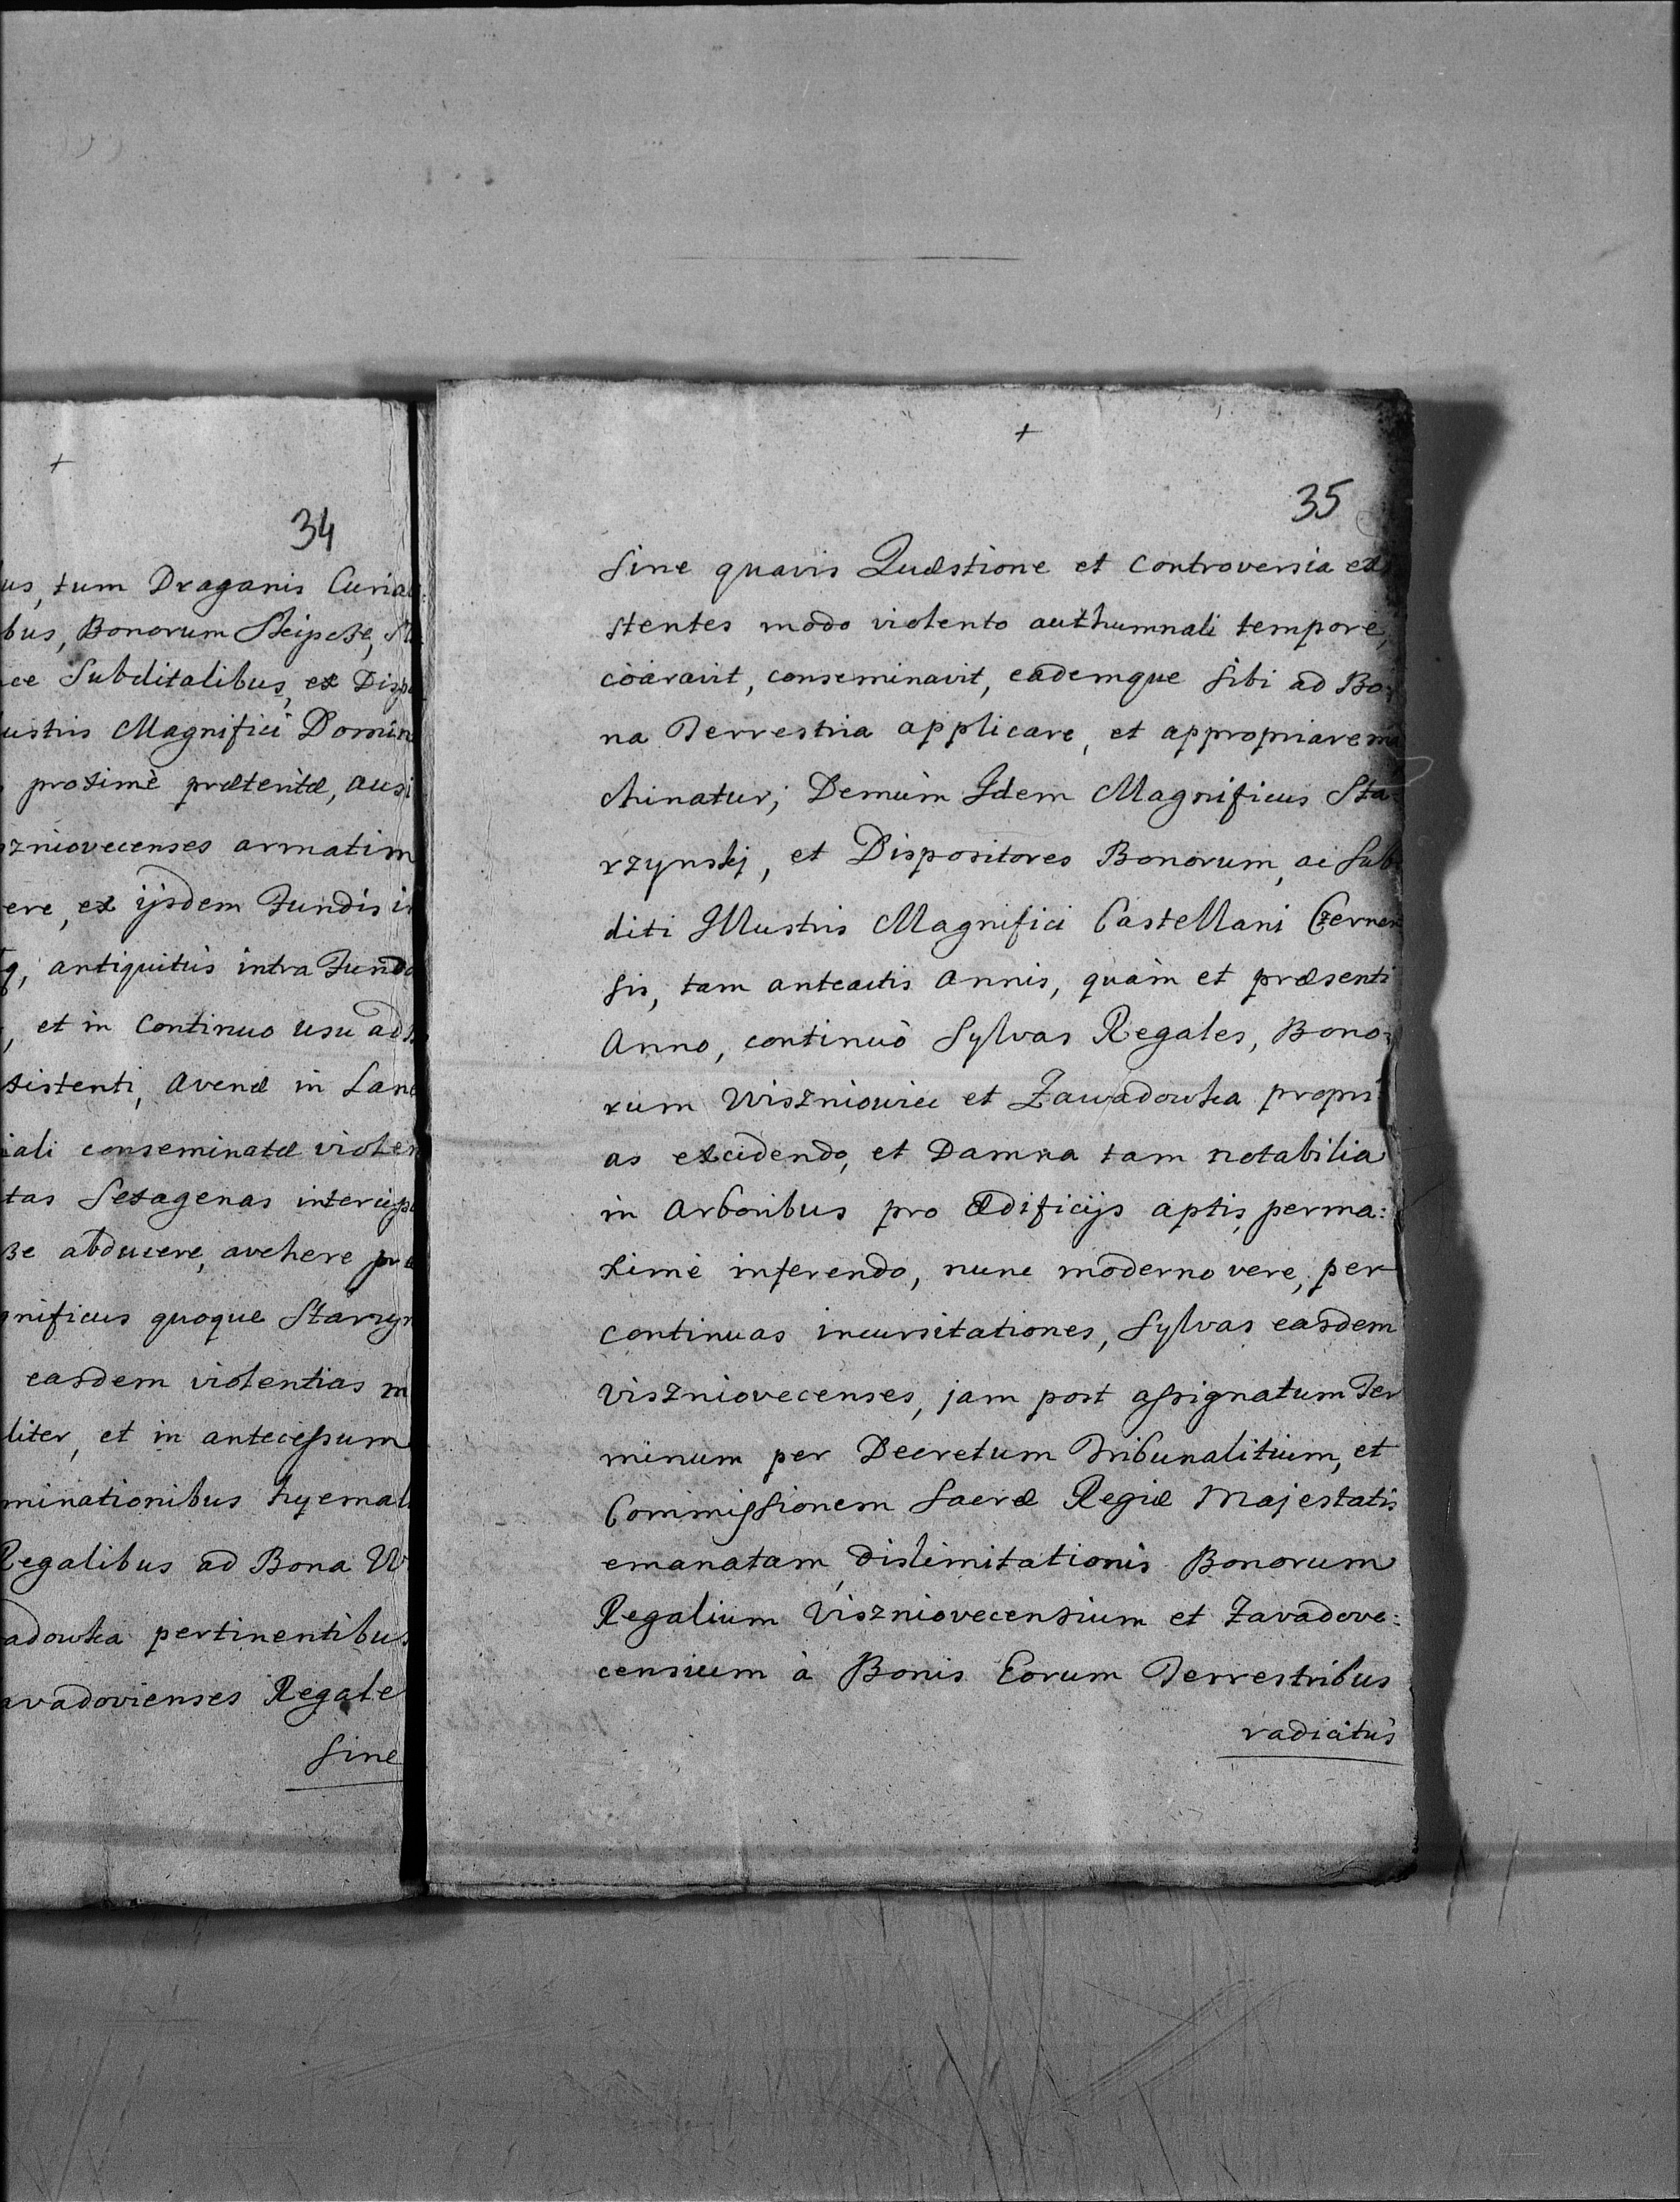 +
34
us, tum Draganis Curia
bus, Bonorum
ce Subditalibus, ex Disp
ustris Magnifici Domin
proximè præteritæ, ausi
zniovecenses armatim
ere, ex ijsdem Fundis i
q, antiquitùs intra Fund
, et in Continuo usu ad
xistenti, Avenæ in Lan
iali conseminatæ violen
tas Sexagenas intercip
se abducere, avehere
gnificus quoque Starzyn
easdem violentias
liter, et in antecessum
minationibus hyemal
Regalibus ad Bona W
adowka pertinentibus
avadovienses Regale
Sine
+
35
Sine quavis Quæstione et Controversia exi
stentes modo violento authumnali tempore,
coaravit, conseminavit, eademque sibi ad Bo:
na Terrestria applicare, et appropriare ma
chinatur; Demùm Idem Magnificus Sta:
rzynskj, et Dispositores Bonorum, ac Sub
diti Illustris Magnifici Castellani Czernen
sis, tam anteactis Annis, quàm et præsenti
Anno, continuò Sylvas Regales, Bono:
rum Wiszniowiec et Zawadowka propri
as excidendo, et Damna tam notabilia
in Arboribus pro Ædificijs aptis, perma:
ximè inferendo, nunc moderno vere, per
continuas incursitationes, Sylvas easdem
Viszniovecenses, jam post assignatum Ter
minum per Decretum Tribunalitium, et
Commissionem Sacræ Regiæ Majestatis
emanatam, dislimitationis Bonorum
Regalium Viszniovecensium et Zavadove:
censium à Bonis Eorum Terrestribus
radicitùs